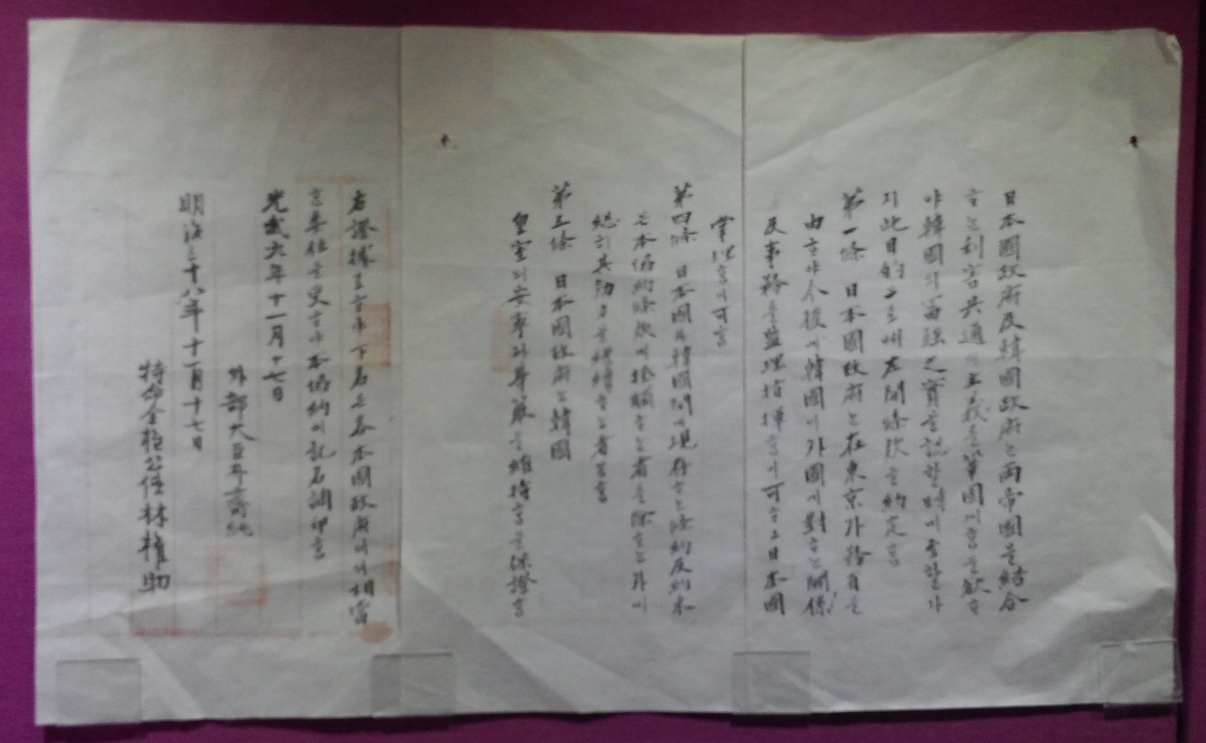 日本國政府及韓國政府는兩帝國을結合
ᄒᆞᄂᆞᆫ利害共通의主義를鞏固케ᄒᆞᆷ을欲ᄒᆞ
야韓國의富强之實을認ᄒᆞᆯ時에至ᄒᆞᆯ
지此目的으로ᄡᅥ左開條款을約定ᄒᆞᆷ
第一條 日本國政府는在東京外務省을
由ᄒᆞ야今後에韓國이外國에對ᄒᆞᄂᆞᆫ關係
及事務를監理指揮ᄒᆞᆷ이可ᄒᆞ고日本國
掌理ᄒᆞᆷ이可ᄒᆞᆷ
第四條 日本國과韓國間에現存ᄒᆞᄂᆞᆫ條約及約束
은本協約條款에抵觸ᄒᆞᄂᆞᆫ者를除ᄒᆞᄂᆞᆫ外에
總히其効力을繼續ᄒᆞᄂᆞᆫ者로ᄒᆞᆷ
第五條 日本國政府는韓國
皇室의安寧과尊嚴을維持ᄒᆞᆷ을保證ᄒᆞᆷ
右證據로ᄒᆞ야下名은各本國政府에셔相當
ᄒᆞᆫ委任을受ᄒᆞ야本協約에記名調印ᄒᆞᆷ
光武九年十一月十七日
外部大臣朴齊純
明治三十八年十一月十七日
特命全權公使林權助